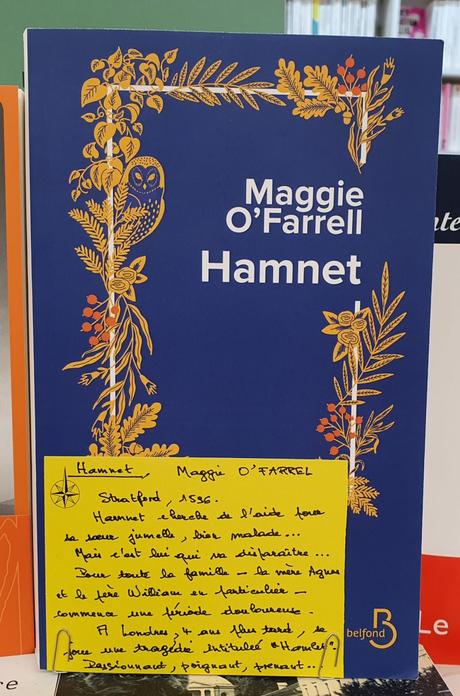 Maggie
O'Farrell
Hamnet
Hamnet, Maggie O'FARREL
Stratford, 1596.
Hamnet cherche de l'aide pour
sa sœur jumelle, bien malade...
Mais c'est lui qui va disparaître...
Pour toute la famille – la mère Agnes
et le père William en particulier –
commence une période douloureuse.
A Londres, 4 ans plus tard, se
joue une tragédie intitulée "Hamlet".
Passionnant, poignant, prenant...
belfond
Le